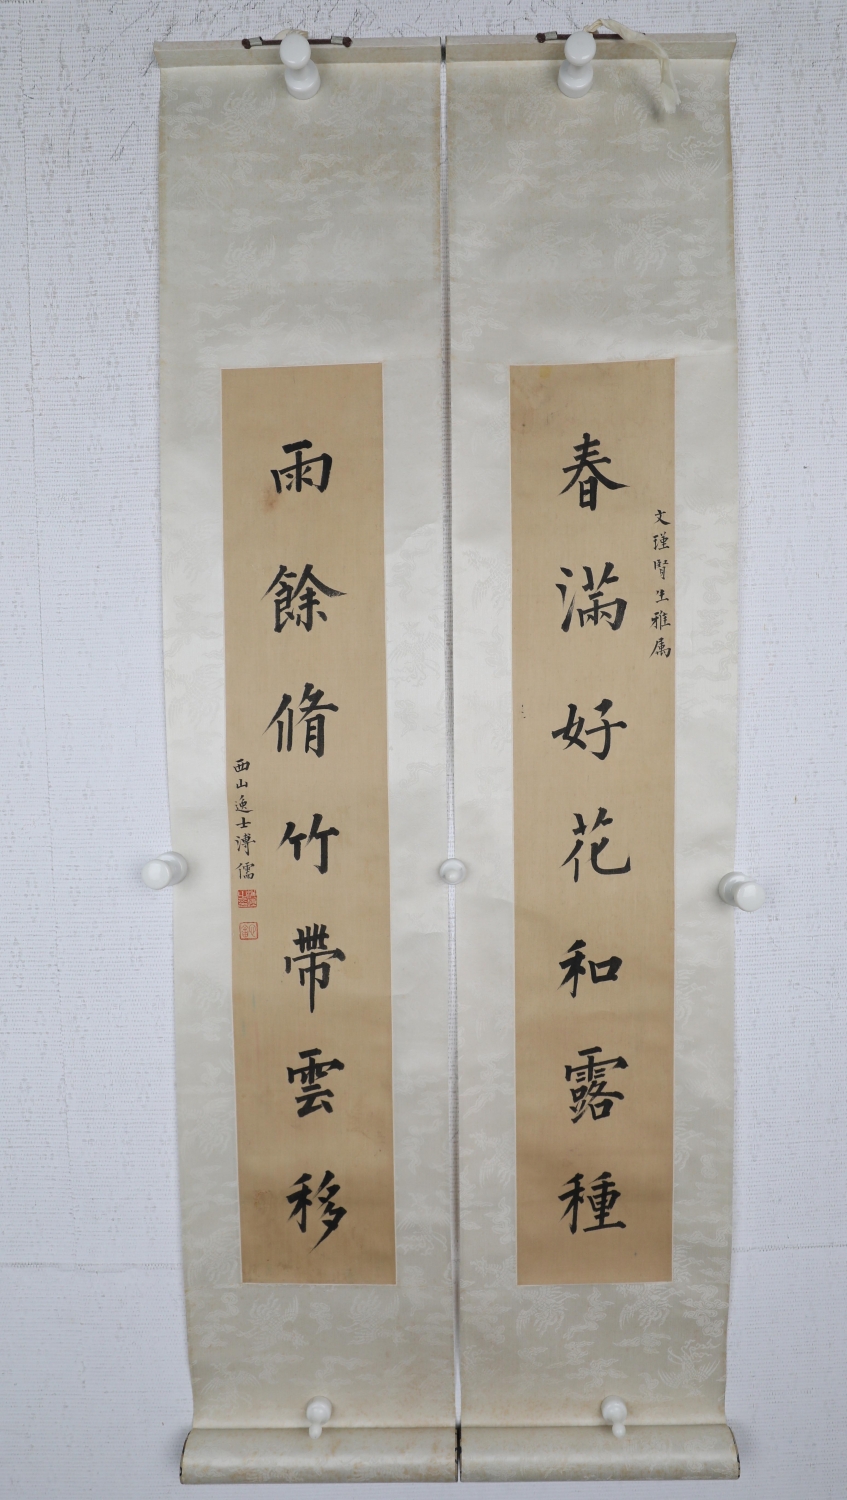 文瑾賢生雅属
春滿好花和露種
雨餘脩竹帶雲移
西山逸士溥儒